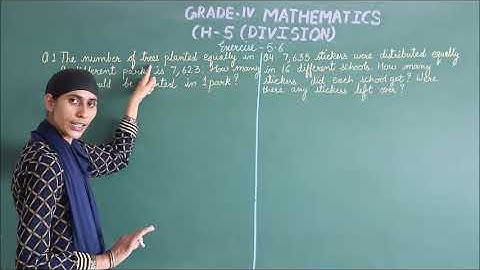 GRADE-IV MATHEMATICS
CH-5 (DIVISION)
Exercise - 5.6
Q1 The number of trees planted equally in
different park is 7,623. How many
be planted in 1 park?
Q4 7,635 stickers were distributed equally
in 16 different schools. How many
stickers did each school get? Were
there any stickers left over?